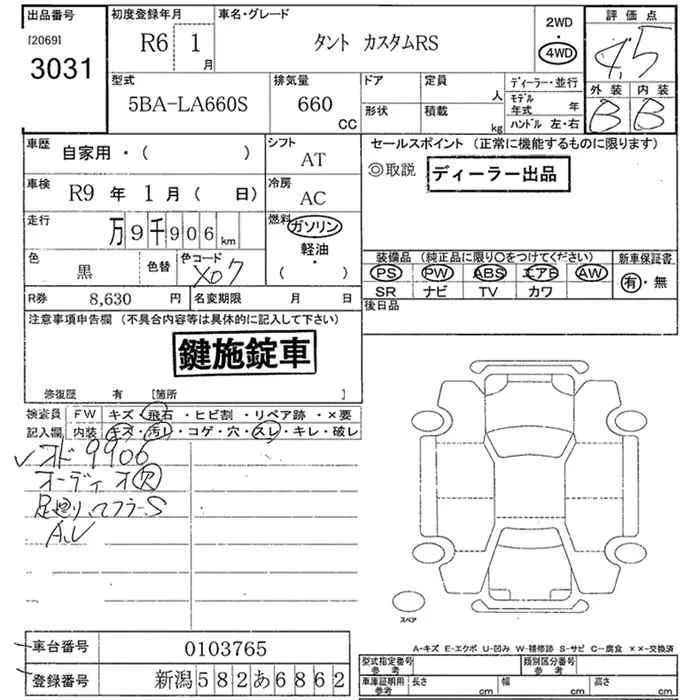 出品番号 [2069] 3031
初度登録年月 R6 1月
車名・グレード タント カスタムRS
2WD・4WD
評価点 4.5
外装 B 内装 B
型式 5BA-LA660S
排気量 660 CC
ドア 定員 人
形状 積載 kg
ディーラー・並行
モデル年式 年
ハンドル 左・右
車歴 自家用・( )
シフト AT
車検 R9 年 1 月 ( 日)
冷房 AC
走行 万 9 千 9 0 6 km
燃料 ガソリン 軽油・( )
色 黒 色替 色コード X07
R券 8,630 円 名変期限 月 日
セールスポイント (正常に機能するものに限ります)
◎取説 ディーラー出品
装備品 (純正品に限り〇をつけてください)
PS PW ABS エアB AW
SR ナビ TV カワ
新車保証書 有・無
後日品
注意事項申告欄 (不具合内容等は具体的に記入して下さい)
鍵施錠車
修復歴 有 [箇所 ]
検査員記入欄
FW キズ・飛石・ヒビ割・リペア跡・×要
内装 キズ・汚レ・コゲ・穴・スレ・キレ・破レ
オド 9906
オーディオ穴
足廻り、マフラーS
スペア
A-キズ E-エクボ U-凹み W-補修跡 S-サビ C-腐食 ××-交換済
車台番号 0103765
登録番号 新潟582あ6862
型式指定番号 参考 類別区分番号 参考
車庫証明用 参考 長さ cm 幅 cm 高さ cm